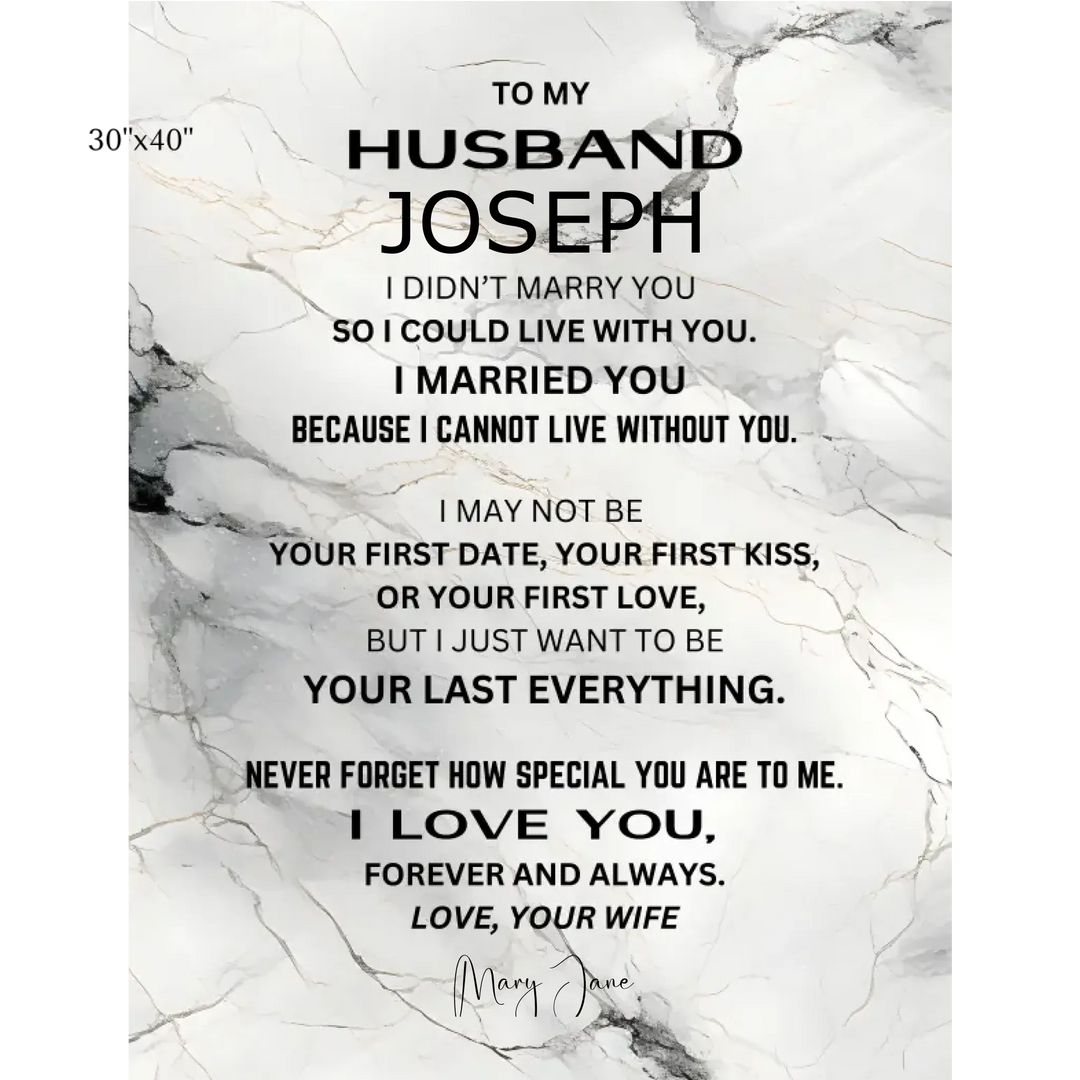 TO MY
30"x40"
HUSBAND
JOSEPH
I DIDN’T MARRY YOU
SO I COULD LIVE WITH YOU.
I MARRIED YOU
BECAUSE I CANNOT LIVE WITHOUT YOU.
I MAY NOT BE
YOUR FIRST DATE, YOUR FIRST KISS,
OR YOUR FIRST LOVE,
BUT I JUST WANT TO BE
YOUR LAST EVERYTHING.
NEVER FORGET HOW SPECIAL YOU ARE TO ME.
I LOVE YOU,
FOREVER AND ALWAYS.
LOVE, YOUR WIFE
Mary Jane